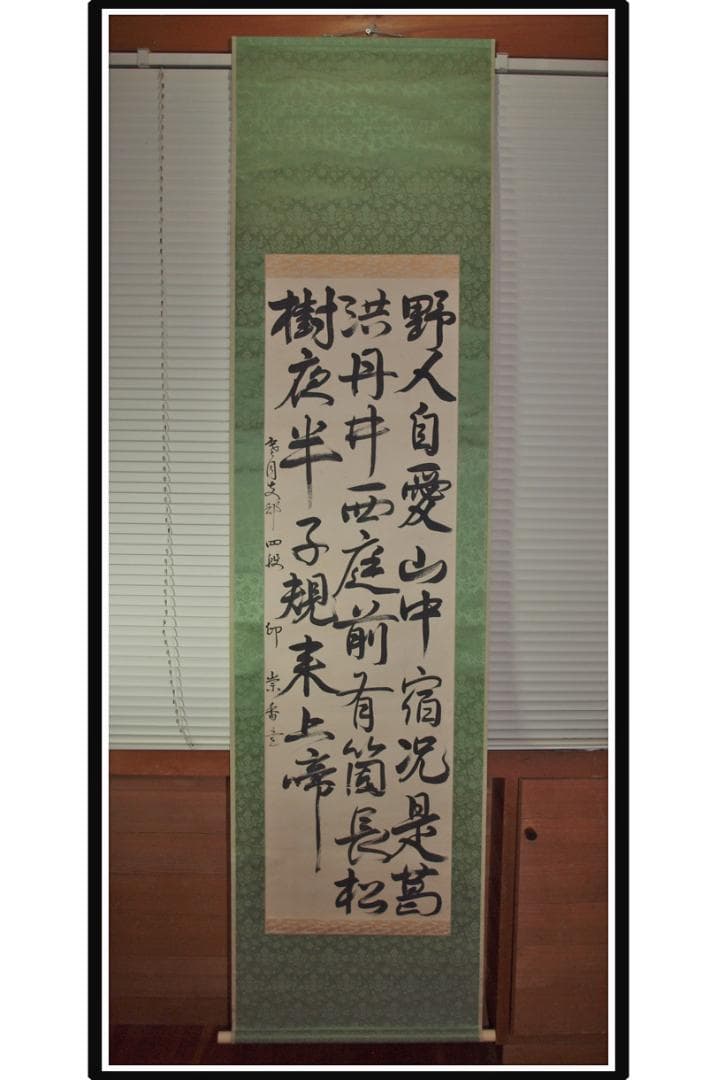 野人自愛山中宿況是葛
洪丹井西庭前有箇長松
樹夜半子規来上啼
月支部 四段 印 崇香